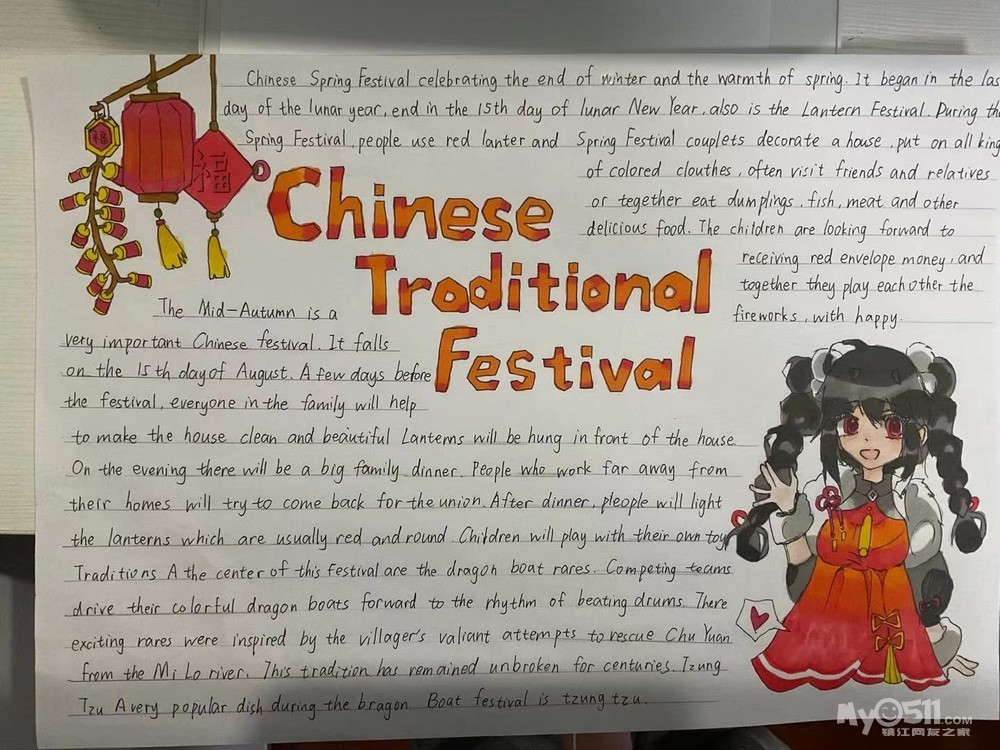 Chinese Spring Festival celebrating the end of winter and the warmth of spring. It began in the las
day of the lunar year, end in the 15th day of lunar New Year, also is the Lantern Festival. During th
Spring Festival, people use red lanter and Spring Festival couplets decorate a house, put on all king
of colored clouthes, often visit friends and relatives
or tegether eat dumplings, fish, meat and other
delicious food. The children are looking forward to
receiving red envelope money, and
together they play each other the
fireworks, with happy.
福
福
Chinese
Traditional
Festival
The Mid-Autumn is a
very important Chinese festival. It falls
on the 15th day of August. A few days before
the festival, everyone in the family will help
to make the house clean and beautiful Lantems will be hung in front of the house
On the evening there will be a big family dinner. People who work far away from
their homes will try to come back for the union. After dinner, pleople will light
the lanterns which are usually red and round Children will play with their own toy
Traditions A the center of this festival are the dragon boat rares. Competing teams
drive their colorful dragon boats forward to the rhythm of beating drums. There
exciting rares were inspired by the villager's valiant attempts to rescue Chu Yuan
from the Mi Lo river. This tradition has remained unbroken for centuries. Tzung
Tzu A very popular dish during the bragon Boat festival is tzung tzu.
My0511.COM
镇江网友之家